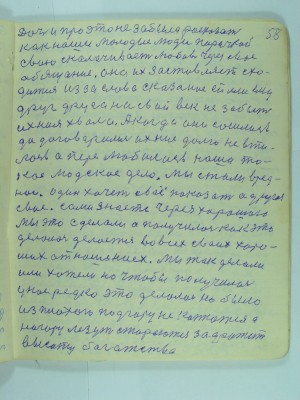 58
Дочь про это не забыла
как наши молодые люди
свою сколачивает любовь через свое
обещание. она их заставляет схо-
дится из за слова сказаное
друг друга на свой век не забыть
их няя хвала. А когда они сошлись
да договорились их ние долго не
лось а перелюбилась наша та-
кое людское дело. Мы стали вред-
ном. один хочет своё показать а другой
свое. сами знаете через хорошого
мы это сделали а получилось как это
делалось делается во всех своих хоро-
ших отношениях. Мы так делали
или хотели но чтобы получилось
у нас редко это делалось но было
из плохого под гору не катются а
на гору лезут стараются задержать
высоту богатства